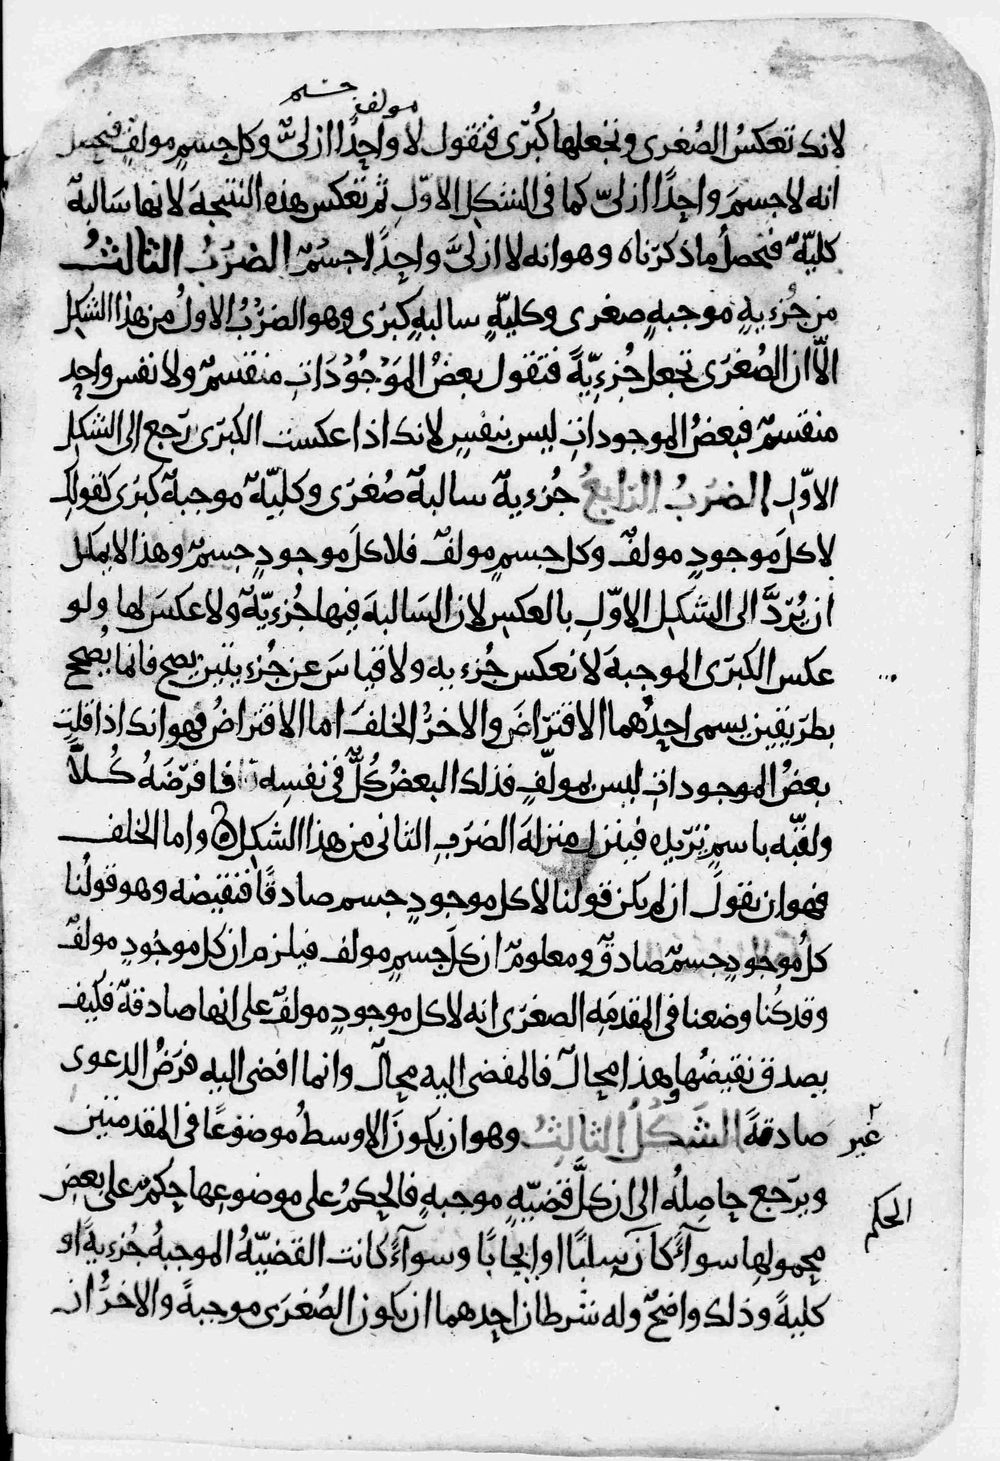 مولف جسم
لانك تعكس الصُغرى وتجعلها كُبرَى فتقول لا واحِدًا ازلىٌّ وكل جسمٍ مولفٍ فتحصل
انه لا جسمَ واحِدًا ازلىّ كما فى الشكل الاوّلِ ثم تعكس هذه النتيجةَ لانها سَالبةٌ
كليّةٌ فتحصلُ ما ذكرناه وهو انه لا ازلىَّ واحِدًا جسْمٌ الضرْبُ الثالثُ
من جُزءيةٍ موجبةٍ صغرى وكليّةٍ سالبةٍ كبرَى وهو الضرْبُ الاولُ من هذا الشكل
الّا ان الصُغرَى تجعل جُزءيّةً فتقول بعضُ المَوْجُوْدَاتِ منقسمٌ ولا نفس واحِد
منقسمٌ فبعضُ الموجوداتِ ليس بنفسٍ لانك اذا عكست الكبرَى رَجع الى الشكلِ
الاوّلِ الضربُ الرابعُ جُزءيةٌ سالبةٌ صُغرَى وكليّةٌ موجبةٌ كبرَى كقولك
لا كلَ موجودٍ مولفٌ وكل جسمٍ مولفٌ فلا كلَ موجودٍ جسمٌ وهذا لا يمكن
ان يُرَدَّ الى الشكل الاوّلِ بالعكس لان السَالبةَ فيها جُزءيّةٌ ولا عكسَ لها ولو
عكس الكبرَى الموجبةَ لانعكس جُزءيه ولا قياسَ عن جُزءيتين يصح فانما يُصَحح
بطريقين يسمى احِدُهما الافتراضَ والاخرُ الخلفَ اما الافتراضُ فهو انك اذا قلت
بعضُ الموجوداتِ ليس بمولّفٍ فذلك البعضُ كُلٌّ فى نفسه فافرَضَهُ كُلاًّ
ولقبّه باسمٍ تريده فينزل منزلةَ الضربِ الثانى من هذا الشكل ه واما الخلف
فهو ان نقولَ ان لم يكن قولنا لا كل موجودٍ جسم صادقًا فنقيضه وهو قولُنا
كلُ موجودٍ جسمٌ صادقٌ ومعلومٌ ان كلَ جسمٍ مولف فيلزم ان كل موجُودٍ مولفٌ
وقد كُنا وضعنا فى المقدمَةِ الصغرَى انه لا كل موجودٍ مولفٌ على انها صادقةٌ فكيف
يصدق نقيضُها وهذا محِالٌ فالمفضى اليه محِالٌ وانما افضى اليه فرَضُ الدعوى
غير
صادقةً الشكلُ الثالثُ وهو ان يكونَ الاوسطُ موضوْعًا فى المقدمتين
ويرَجع حِاصِلُه الى ان كلَّ قضيّةٍ موجبةٍ فالحِكمُ على موضوعِها حِكمٌ على بعضِ
الحكم
محِمولها سوآءً كانَ سلبًا او ايجابًا وسوآءً كانت القضيّةُ الموجبةُ جُزءيةً او
كليةً وذلك واضحٌ وله شرطان احِدهما ان يكون الصُغرَى موجبةً والاخرُ ان